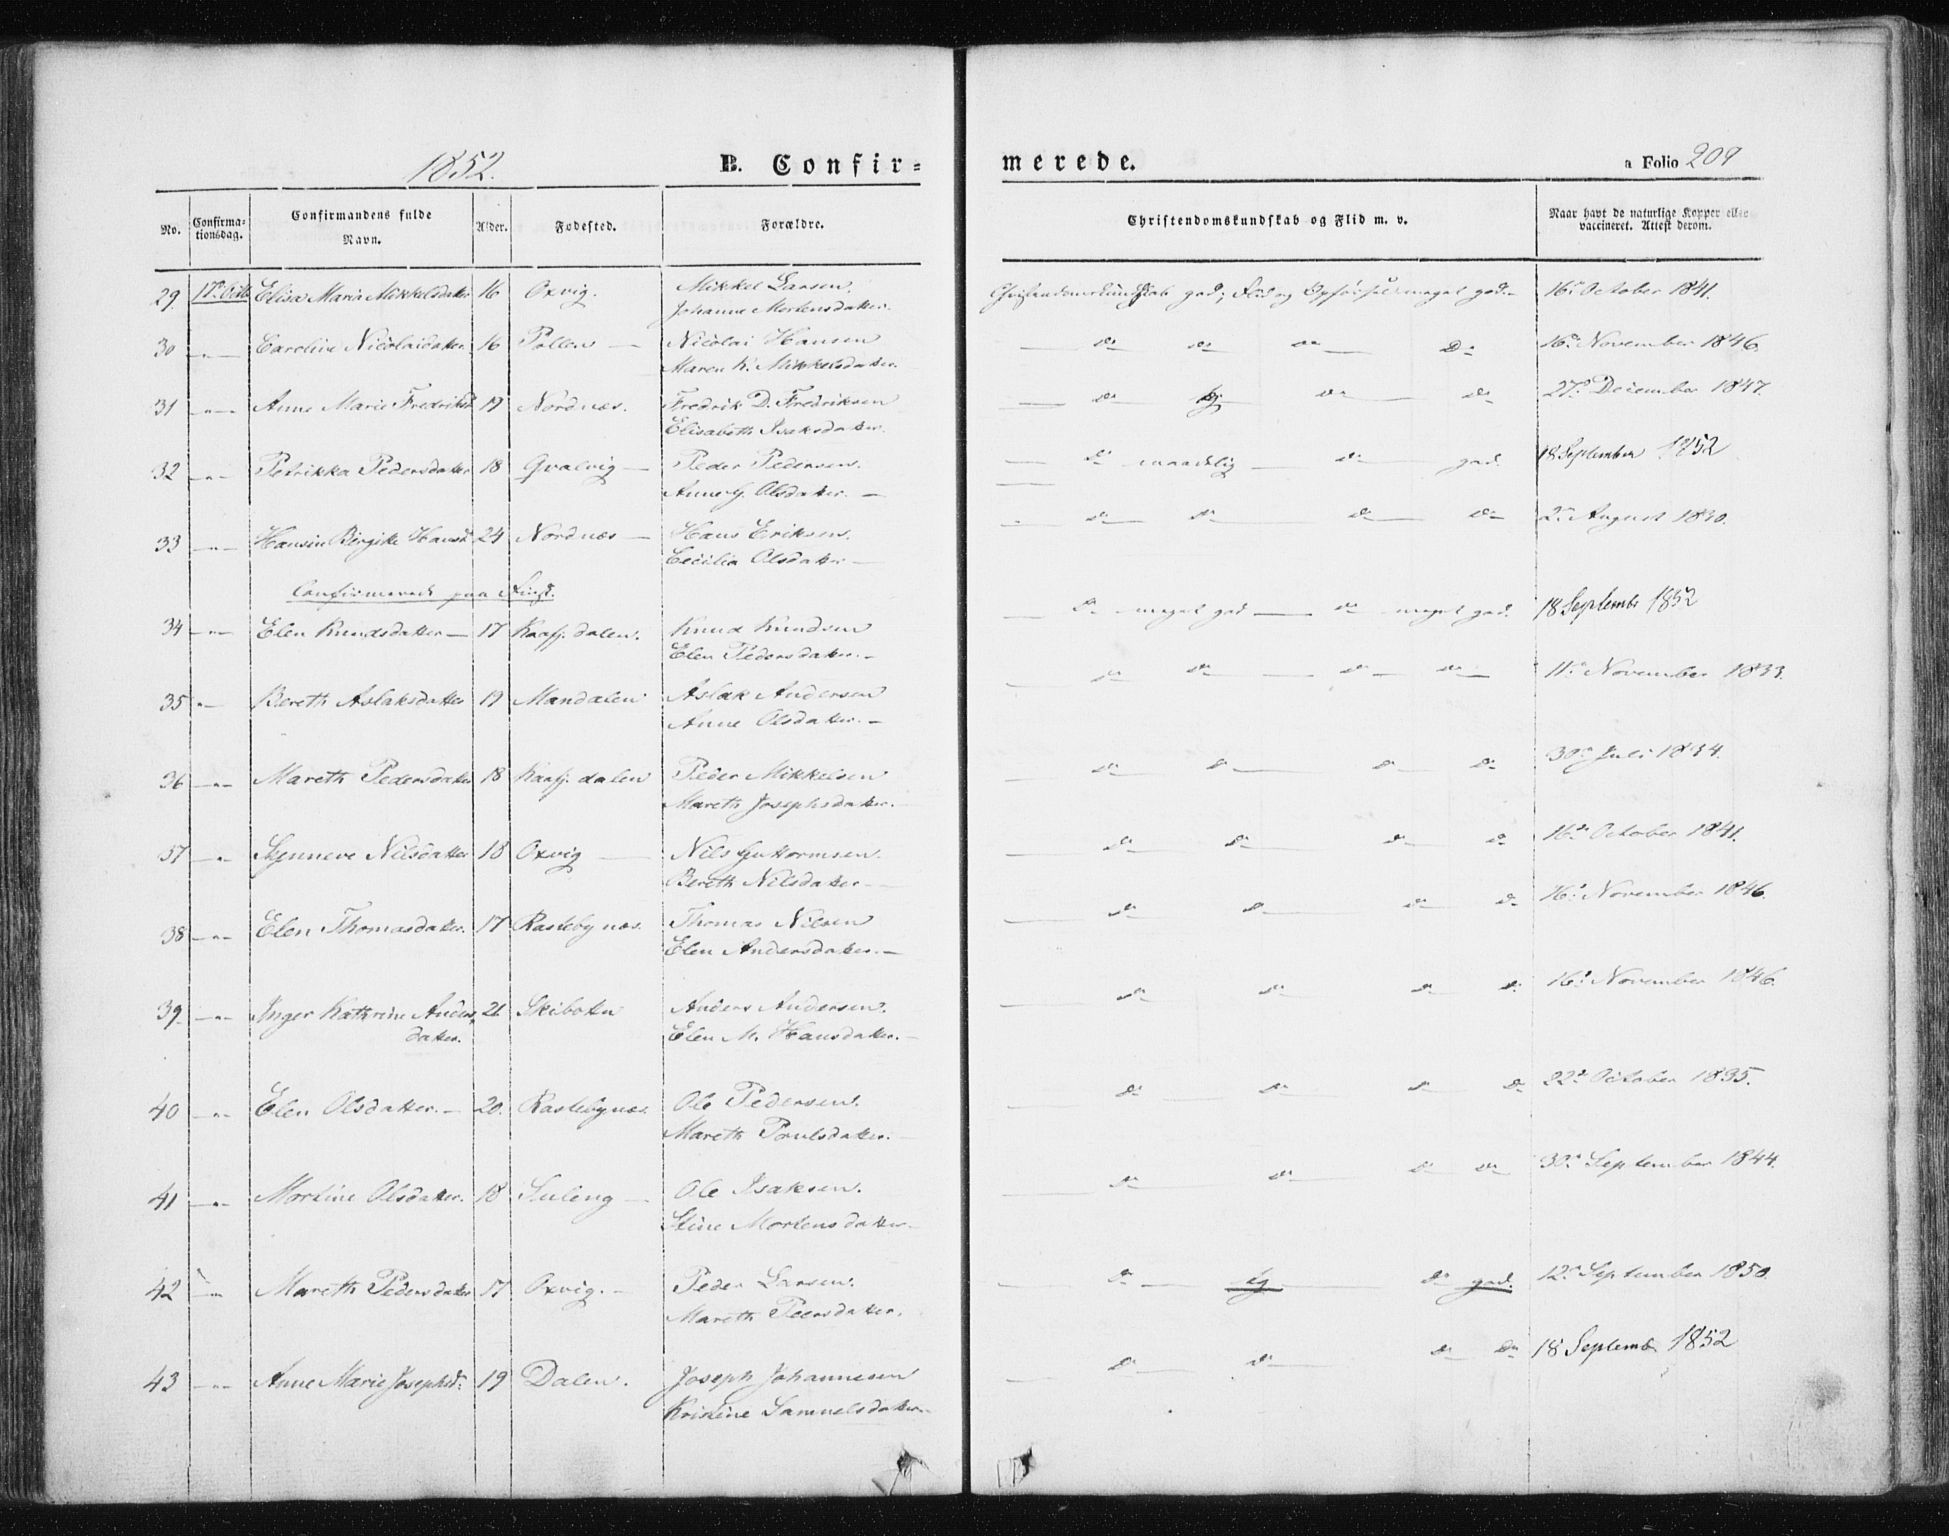 1852.
B. Confir=
merede.
a Folio 209
No.
Confirma-
tionsdag.
Confirmandens fulde
Navn.
Alder.
Fødested.
Forældre.
Christendomskundskab og Flid m. v.
Naar havt de naturlige Kopper eller
vaccineret. Attest derom.
29. 17de Octb Elisa Maria Mikkelsdatter 16 Oxvig. Mikkel Larsen. Christendomskundskab god, Flid og Opførsel meget god. 16de October 1841.
Johanne Mortensdatter.
30 — " — Caroline Nicolaidatter 16 Pollen — Nicolai Hansen — do do do — Do 16de November 1846.
Maren K. Mikkelsdatter.
31 — " — Anne Marie Fredriksd 19 Nordnæs. Fredrik D. Fredriksen — do do — do 27de December 1847.
Elisabeth Isaksdatter.
32 — " — Petrikka Pedersdatter 18 Qvalvig — Peder Pedersen. — do maadelig — do god. 18 September 1852
Anne G. Olsdatter. —
33 — " — Hansin Birgitte Hansd 24 Nordnæs — Hans Eriksen. — do — do — do — do 2de August 1830.
Cecilia Olsdatter —
Confirmerede paa Finsk.
34 — " — Elen Knudsdatter — 17 Kaafj. dalen. Knud Knudsen — do meget god — do meget god. 18 Septembr 1852
Elen Pedersdatter. —
35 " — Bereth Aslaksdatter 19 Mandalen Aslak Andersen — do do — do — do — 11te November 1833.
Anne Olsdatter. —
36 — " — Mareth Pedersdatter 18 Kaafj. dalen Peder Mikkelsen — do do — do do 30de Juli 1834.
Mareth Josephsdatter.
37 — " Synneve Nilsdatter 18 Oxvig — Nils Guttormsen. — do do — do do 16de October 1841.
Bereth Nilsdatter —
38 — " — Elen Thomasdatter. 17 Rastebynæs. Thomas Nilsen — do do — do do 16de November 1846.
Elen Andersdatter. —
39. — " — Inger Kathrine Anders 21 Skibotn Anders Andersen. — do do do do 16de November 1846.
datter. Elen M. Hansdatter. —
40 — " — Elen Olsdatter. — 20. Rastebynæs. Ole Pedersen. — do do do do 22de October 1835.
Mareth Poulsdatter. —
41 — " — Martine Olsdatter. 18 Suleng — Ole Isaksen. — do do — do do 30de September 1844.
Stine Mortensdatter —
42 — " — Mareth Pedersdatter 17 Oxvig. — Peder Larsen. — do — do god. 12te September 1850.
Mareth Peersdatter.
43 — " — Anne Marie Josephsd: 19 Dalen. Joseph Johannesen — do — do — do do 18 Septemb 1852
Kristine Samuelsdatter. —